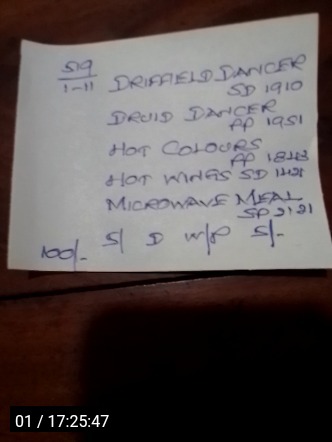 519
1-11 DRIFFIELD DANCER
SD 1910
DRUID DANCER
AP 1951
HOT COLOURS
AP 1843
HOT WINGS SD 1421
MICROWAVE MEAL
SP 2121
100/- S/ D W/P S/-
01 / 17:25:47